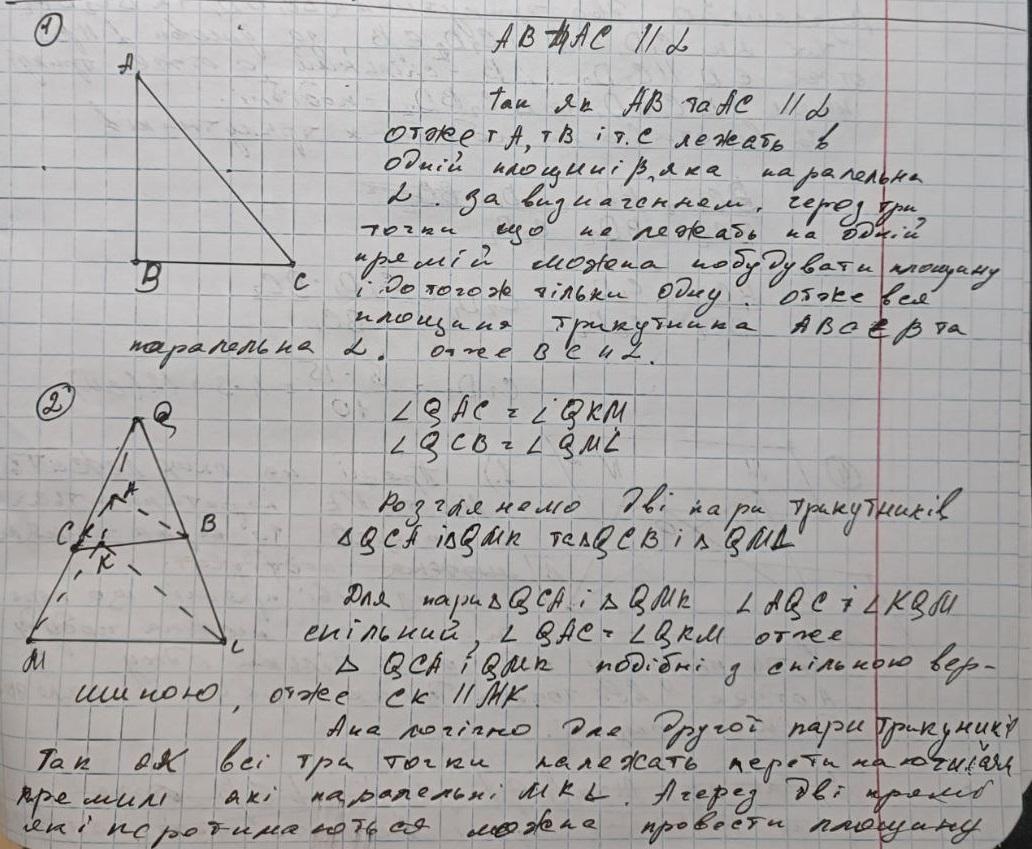 1
A
B
C
AB та AC || α
Так як AB та AC || α
отже т A, т B і т. C лежать в
одній площині β, яка паралельна
α. За визначенням, через три
точки що не лежать на одній
прямій можна побудувати площину
і до того ж тільки одну. отже вся
площина трикутника ABC ∈ β та
паралельна α. отже BC || α.
2
Q
A
C
B
K
M
L
∠QAC = ∠QKM
∠QCB = ∠QML
Розглянемо дві пари трикутників
△QCA і △QMK та △QCB і △QML
Для пари △QCA і △QMK ∠AQC і ∠KQM
спільний, ∠QAC = ∠QKM отже
△ QCA і QMK подібні з спільною вер-
шиною, отже CK || MK.
Аналогічно для другої пари
Так як всі три точки належать
які паралельні MKL. А через дві прямі
які перетинаються можна провести площину